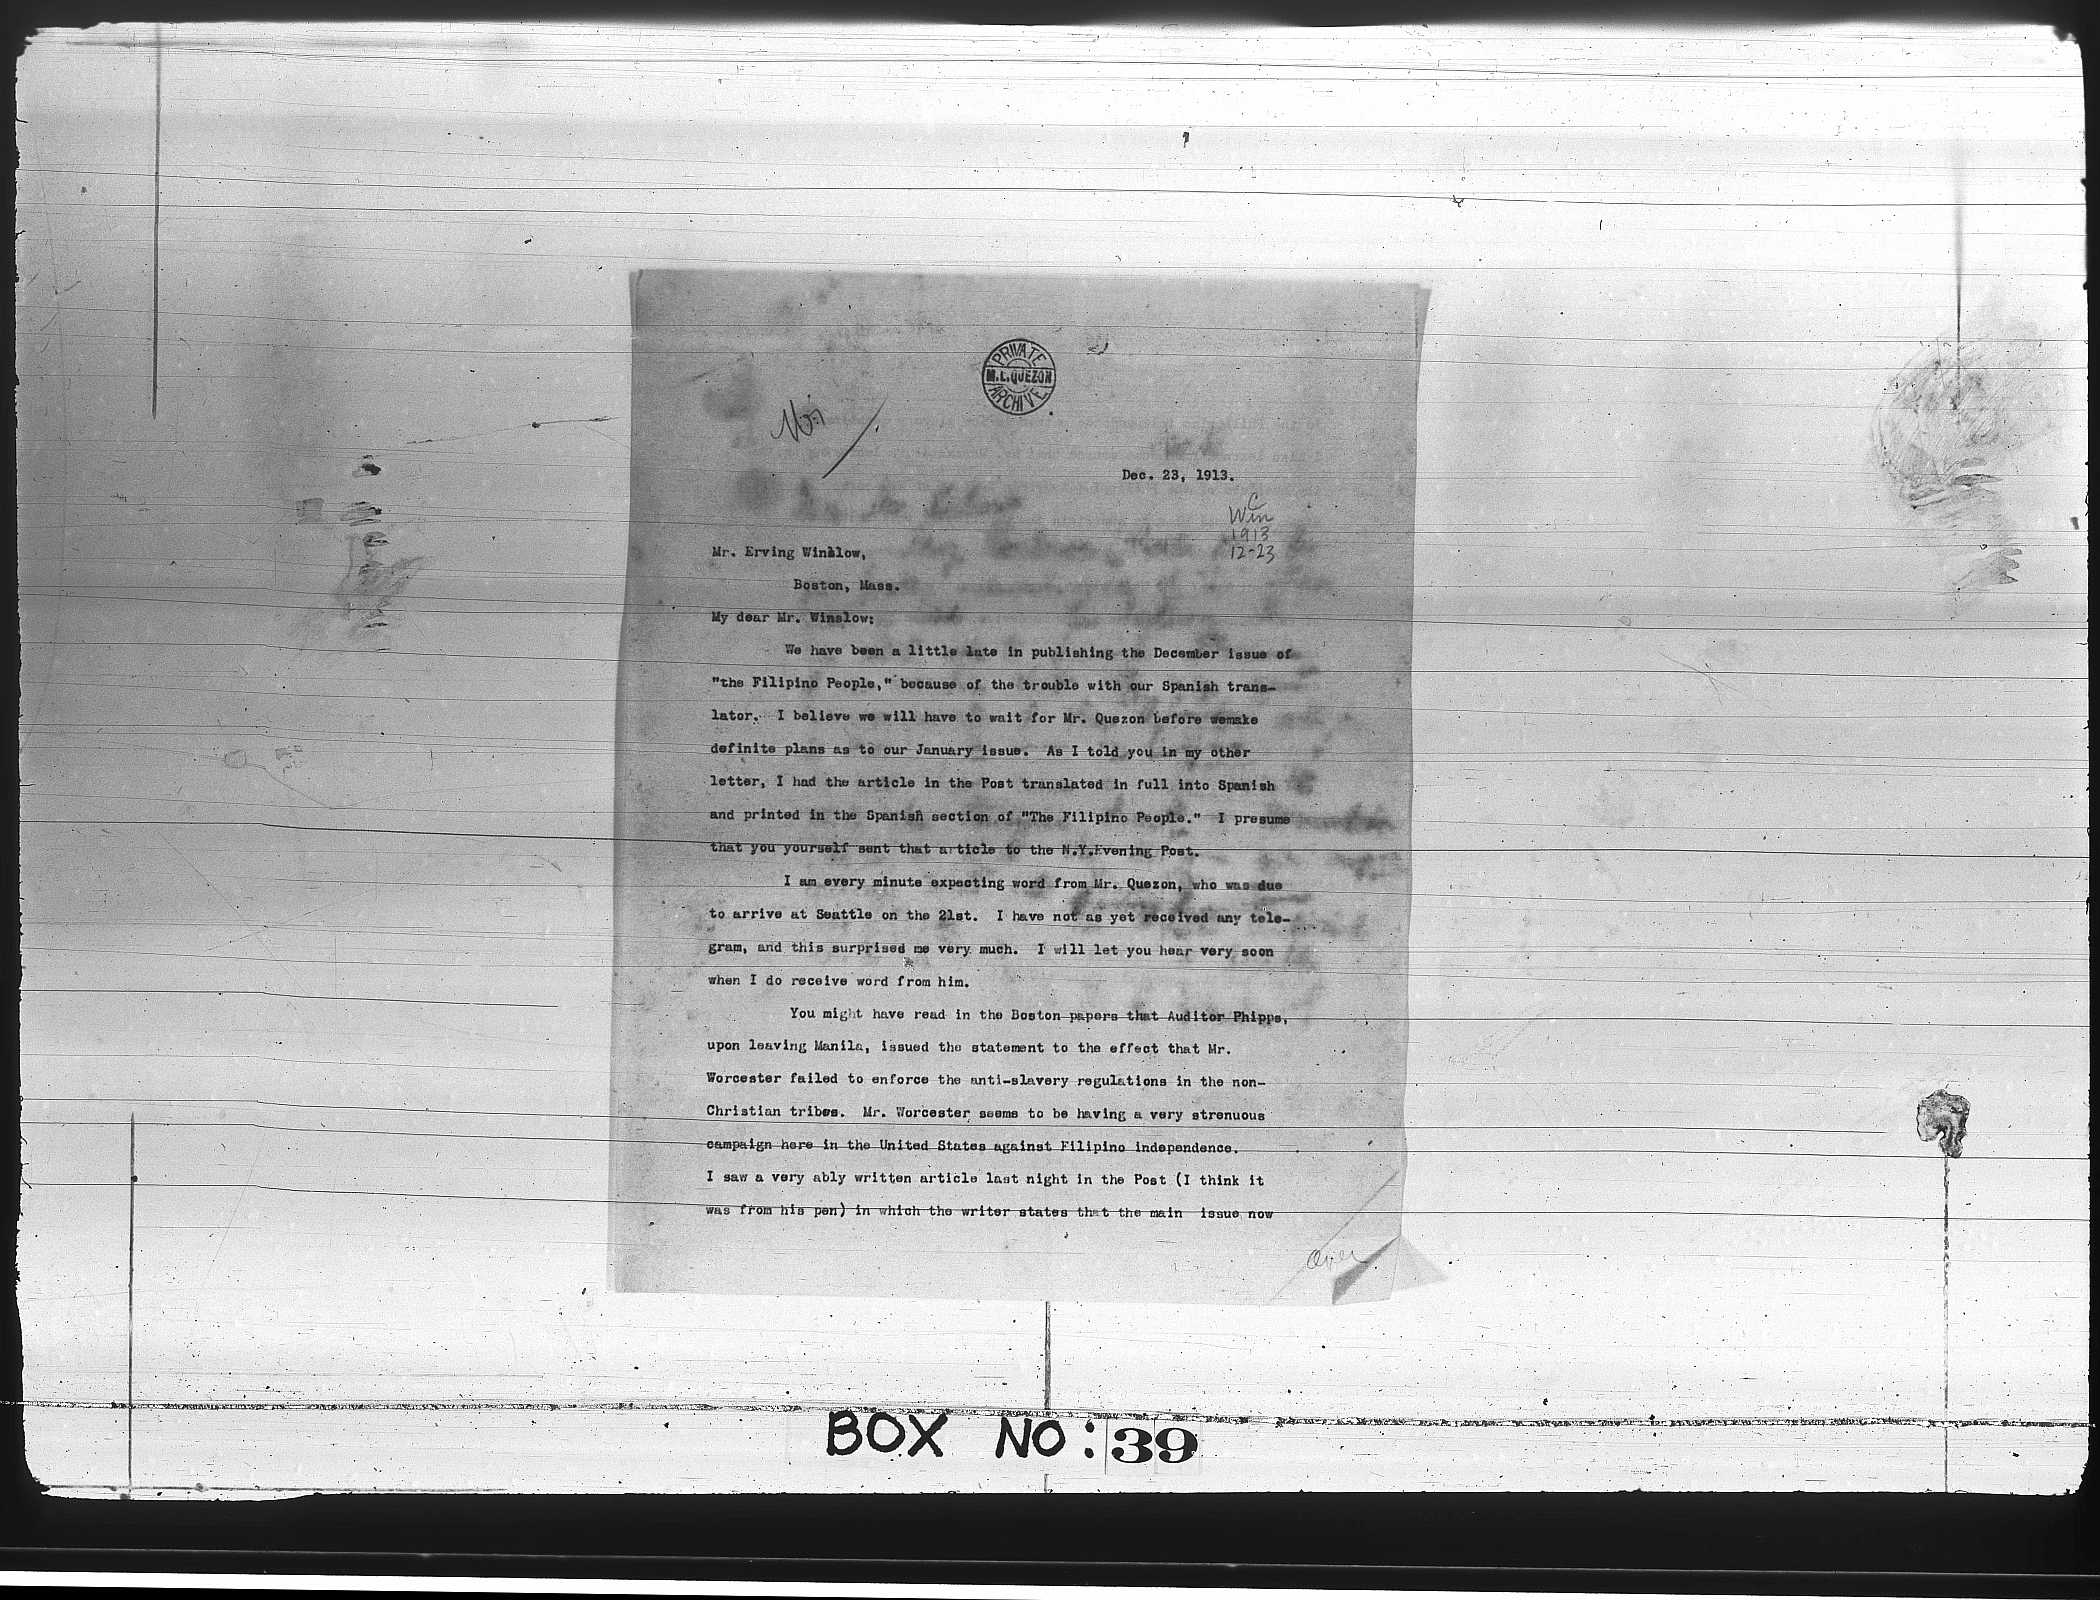 PRIVATE
M.L.QUEZON
ARCHIVE
Dec. 23, 1913.
C
Win
1913
12-23
Mr. Erving Winslow,
Boston, Mass.
My dear Mr. Winslow:
We have been a little late in publishing the December issue of
"the Filipino People," because of the trouble with our Spanish trans-
lator. I believe we will have to wait for Mr. Quezon before wemake
definite plans as to our January issue. As I told you in my other
letter, I had the article in the Post translated in full into Spanish
and printed in the Spanish section of "The Filipino People." I presume
that you yourself sent that article to the N.Y.Evening Post.
I am every minute expecting word from Mr. Quezon, who was due
to arrive at Seattle on the 21st. I have not as yet received any tele-
gram, and this surprised me very much. I will let you hear very soon
when I do receive word from him.
You might have read in the Boston papers that Auditor Phipps,
upon leaving Manila, issued the statement to the effect that Mr.
Worcester failed to enforce the anti-slavery regulations in the non-
Christian tribes. Mr. Worcester seems to be having a very strenuous
campaign here in the United States against Filipino independence.
I saw a very ably written article last night in the Post (I think it
was from his pen) in which the writer states that the main issue now
Over
BOX NO: 39